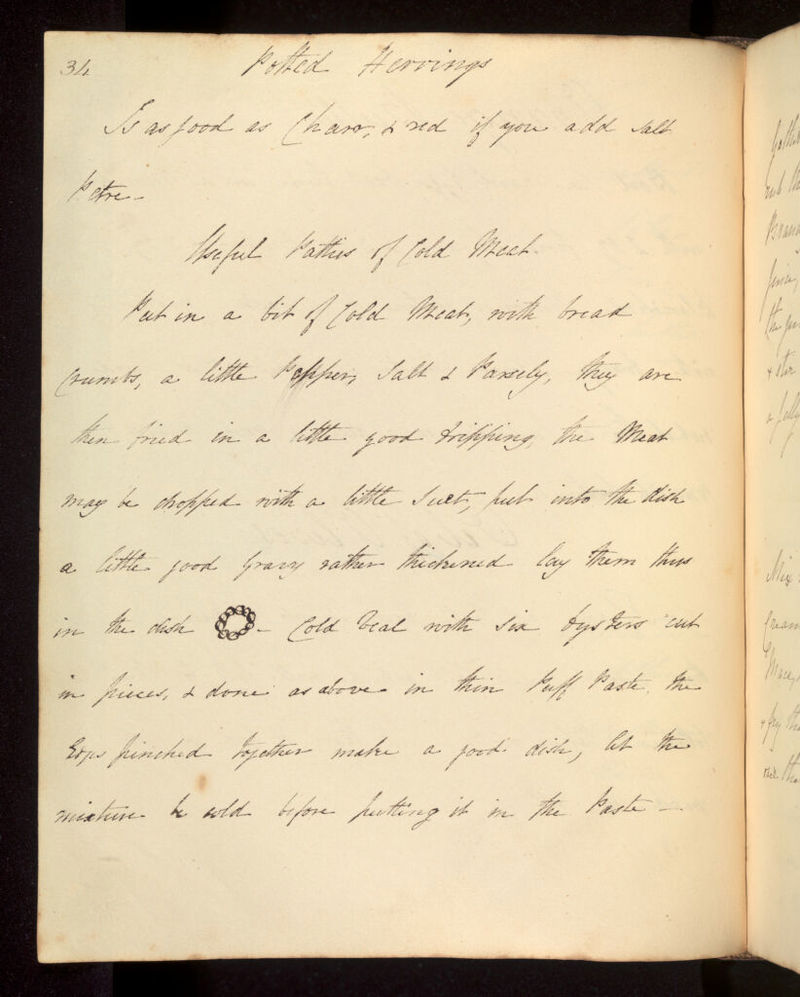 34
Potted Herrings
Is as good as Charr, & red if you add Salt
Petre -
Useful Patties of Cold Meat.
Put in a bit of Cold Meat, with bread
Crumbs, a little Pepper, Salt & Parsely, they are
then fried in a little good dripping, the Meat
may be chopped with a little Suet, put into the dish
a little good Gravy rather thickened lay them thus
in the dish - Cold Veal with six Oysters cut
in pieces, & done as above in thin Puff Paste, the
pinched together make a good dish, let the
mixture be cold before putting it in the Paste -